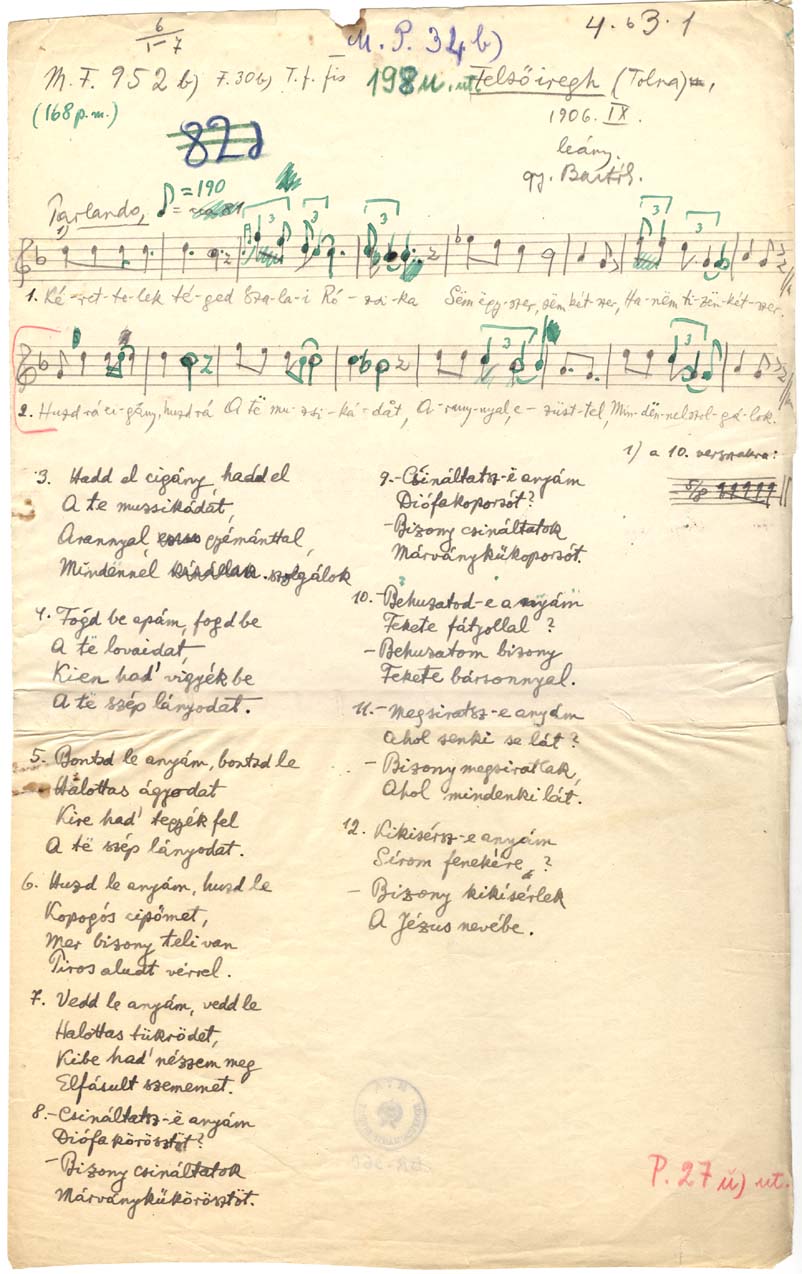 6
1-7
M. P. 34b)
4. 63. 1
M. F. 952 b) F. 30b) T. f. fis
198 u. ut.
Felsőiregh (Tolna),
(168 p.m.)
1906. IX.
82
leány.
gy. Bartók.
= 190
Parlando,
1)
1. Ké-ret-te-lek té-ged Sza-la-i Ró-zsi-ka Sëm ëgy-szer, sëm két-szer, Ha-nëm ti-zën-két-szer.
2. Huzd rá ci-gány, huzd rá A të mu-zsi-ká-dat, A-rany-nyal, e-züst-tel, Min-dën-nel szol-gá-lok.
1) a 10. versszakra:
5/8
3. Hadd el cigány hadd el
A te muzsikádat,
Arannyal gyémánttal,
Mindennel szolgálok
4. Fogd be apám, fogd be
A të lovaidat,
Kien had' vigyék be
A të szép lányodat.
5. Bontsd le anyám, bontsd le
Halottas ágyodat
Kire had' tegyék fel
A të szép lányodat.
6. Huzd le anyám, huzd le
Kopogós cipőmet,
Mer bizony teli van
Piros aludt vérrel.
7. Vedd le anyám, vedd le
Halottas tükrödet,
Kibe had' nézzem meg
Elfásult szememet.
8. - Csináltatsz-ë anyám
Diófa körösztöt?
- Bizony csináltatok
Márványkűkörösztöt.
9. - Csináltatsz-ë anyám
Diófakoporsót?
- Bizony csináltatok
Márványkűkoporsót.
10. - Behuzatod-e anyám
Fekete fátyollal ?
- Behuzatom bizony
Fekete bársonnyal.
11. - Megsiratsz-e anyám
Ahol senki se lát ?
- Bizony megsiratlak,
Ahol mindenki lát.
12. Kikisérsz-e anyám
Sírom fenekére ?
- Bizony kikísérlek
A Jézus nevébe.
P. 27 ŭ) ut.